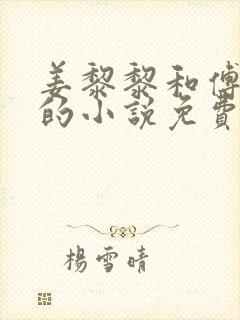 姜黎黎和傅
的小說免費
楊雪晴